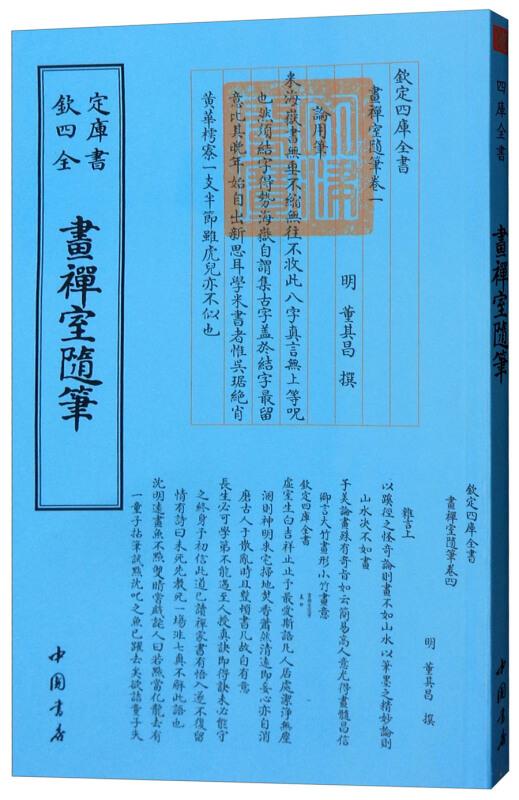 欽定四庫全書
畫禪室隨筆卷一
明 董其昌 撰
論用筆
米海嶽書無垂不縮無往不收此八字真言無上等呪
也然須結字得勢海嶽自謂集古字盖於結字最留
意比其晚年始自出新思耳學米書者惟吳琚絶肖
黄華樗寮一支半節雖虎兒亦不似也
欽定四庫全書
畫禪室隨筆
中国书店
欽定四庫全書
畫禪室隨筆卷四
明 董其昌 撰
雜言上
以蹊徑之怪奇論則畫不如山水以筆墨之精妙論則
山水决不如畫
子美論畫殊有奇旨如云簡易高人意尤得畫髓昌信
卿言大竹畫形小竹畫意
欽定四庫全書
虚室生白吉祥止止予最愛斯語凡人居處潔淨無塵
溷則神明來宅掃地焚香蕭然清遠即妄心亦自消
磨古人于散亂時且整頓書几故自有意
長生必可學第不能遇至人授真訣即得訣未必能守
之終身予初信此道已讀禪家書有悟入遂不復留
情有詩曰未死先教死一場非七真不解此語也
沈明遠畫魚不點雙睛常戲詫人曰若點當化龍去有
一童子拈筆試點沈叱之魚已躍去矣欲詰童子失
四庫全書
畫禪室隨筆